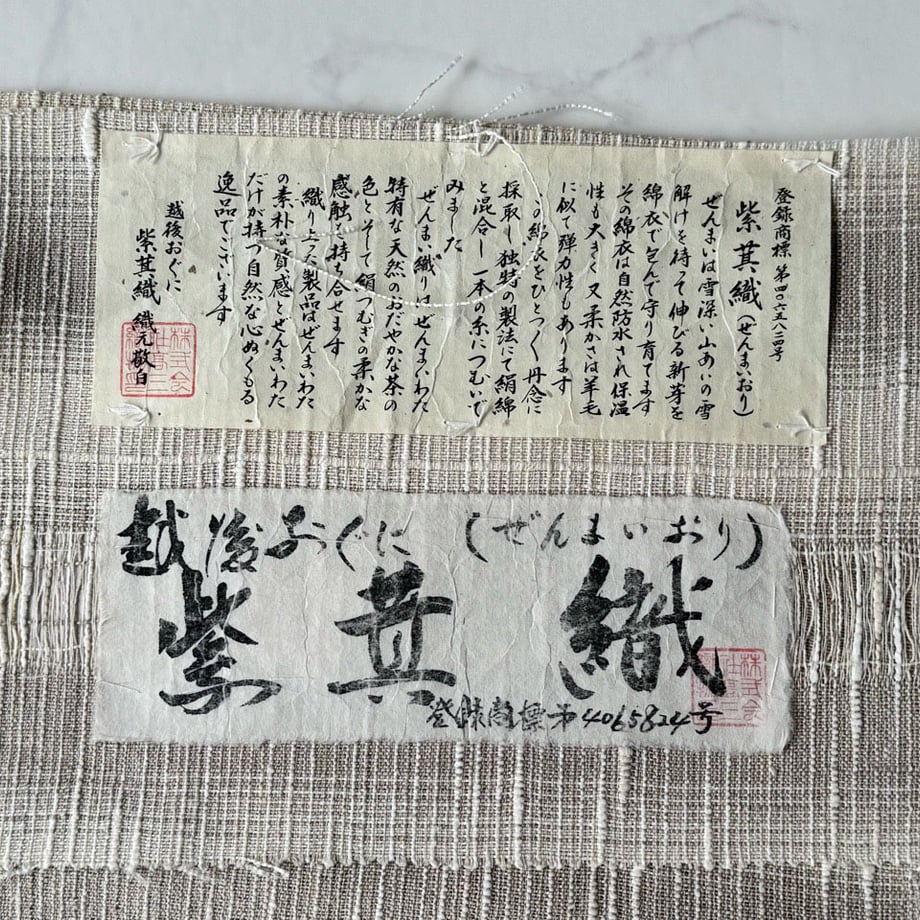 登録商標 第四〇六五八二四号
紫萁織（ぜんまいおり）
ぜんまいは雪深い山あいの雪
解けを待って伸びる新芽を
綿衣で包んで守り育てます
その綿衣は自然防水され保温
性も大きく又柔かさは羊毛
に似て弾力性もあります
の綿衣をひとつ〱丹念に
採取し独特の製法にて絹綿
と混合し一本の糸につむいで
みました
ぜんまい織りはぜんまいわた
特有な天然のおだやかな茶の
色とそして絹つむぎの柔かな
感触を持ち合せます
織り上った製品はぜんまいわた
の素朴な質感とぜんまいわた
だけが持つ自然な心ぬくもる
逸品でございます
越後おぐに
紫萁織 織元敬白
株式会
越後おぐに（ぜんまいおり）
紫萁織
登録商標第4065824号
株式会